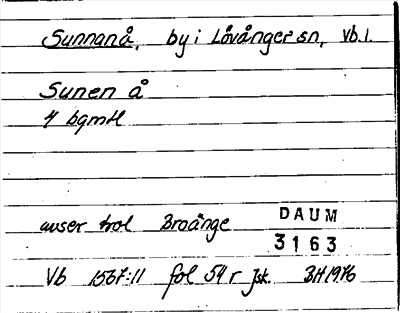 Sunnanå, by i Lövånger sn, Vb.l.
Sunen å
4 bgmtl
avser trol Broänge
DAUM
3163
Vb 1567:11 fol 54 r Jsk. BH 1976